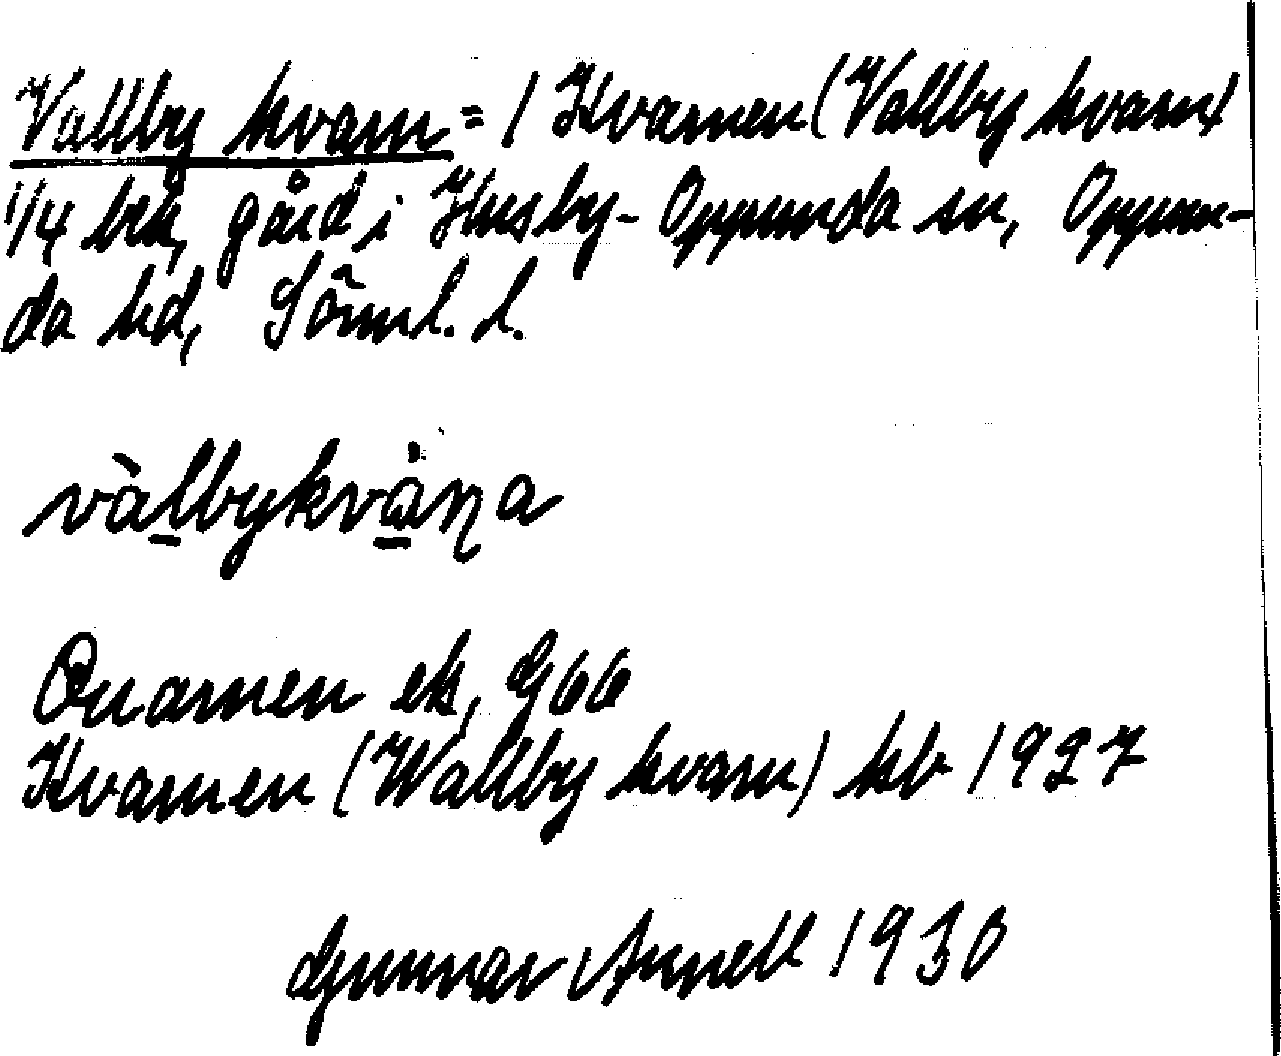 Vallby kvarn = 1 Kvarnen (Vallby kvarn)
1/4 bek, gård i Husby-Oppunda sn, Oppun-
da hd, Sörml. l.
vàlbykvàṇa
Quarnen ek, G66
Kvarnen (Wallby kvarn) kb 1927
Gunnar Arnell 1930